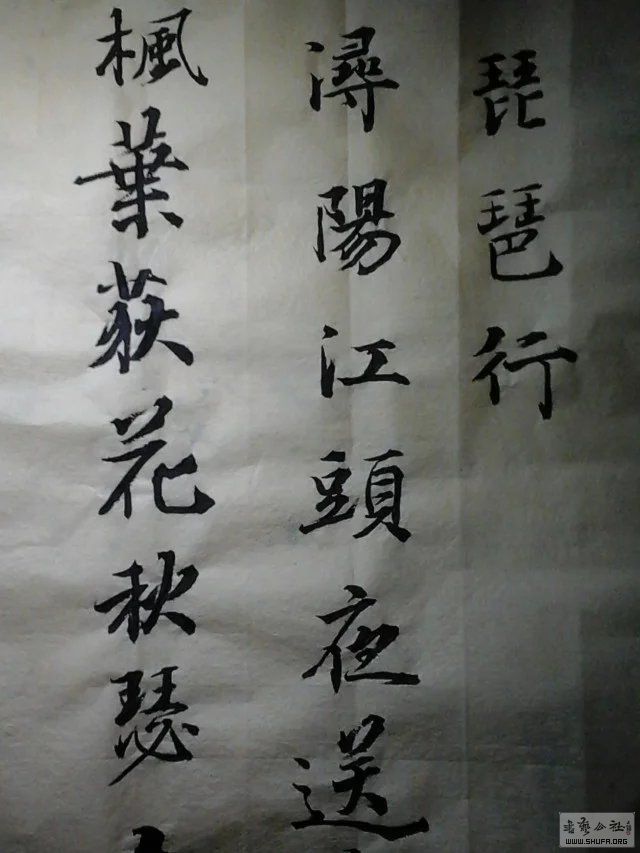 琵琶行
潯陽江頭夜送
楓葉荻花秋瑟
WWW.SHUFA.ORG